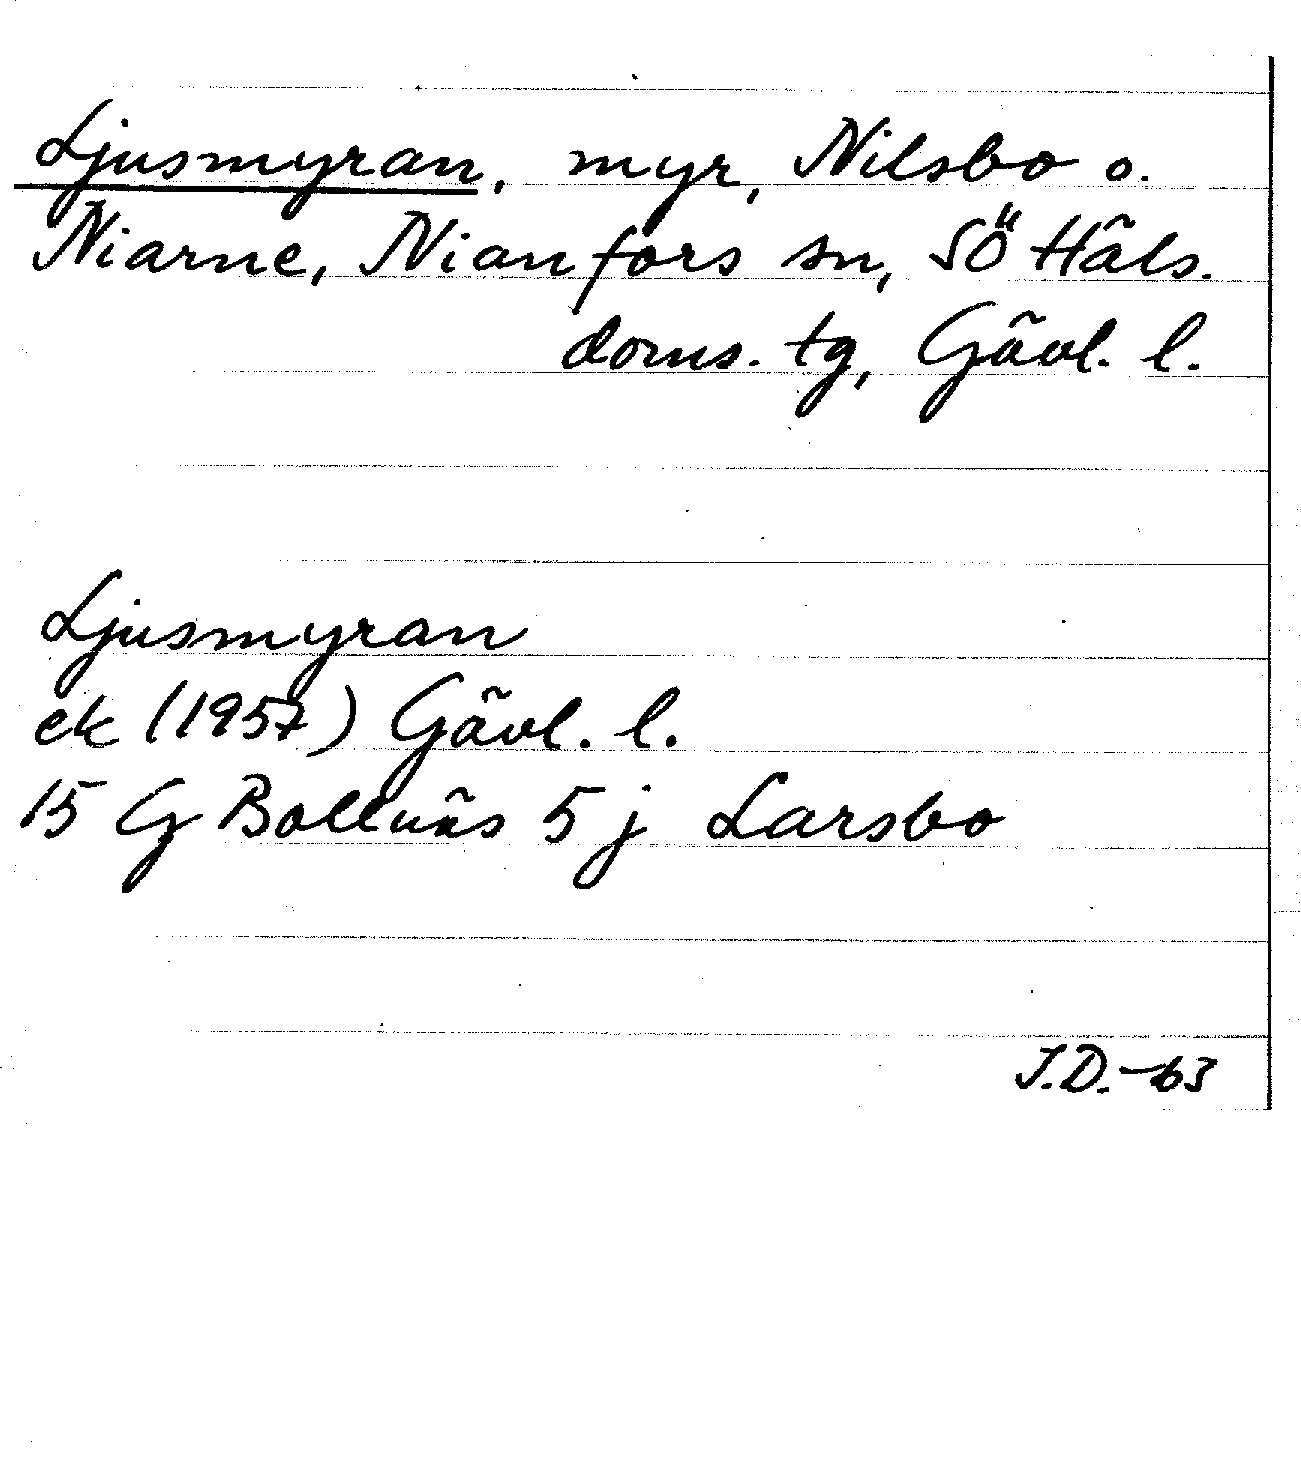 Ljusmyran, myr, Nilsbo o.
Niarne, Nianfors sn, SÖ Häls.
doms. tg, Gävl. l.
Ljusmyran
ek (1957) Gävl. l.
15 G Bollnäs 5 j Larsbo
I.D.-63